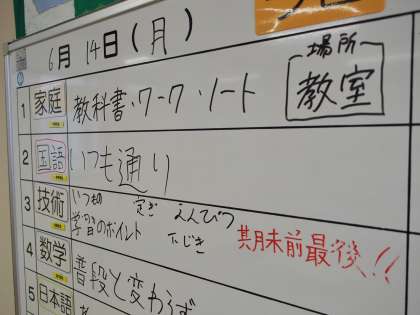 6月 14日(月)
場所
教室
1 家庭 教科書・ワーク・ノート
2 国語 いつも通り
3 技術 いつもの 定ぎ えんぴつ
学習のポイント 下じき
其月末前最後!!
4 数学 普段と変わらず
5 日本語